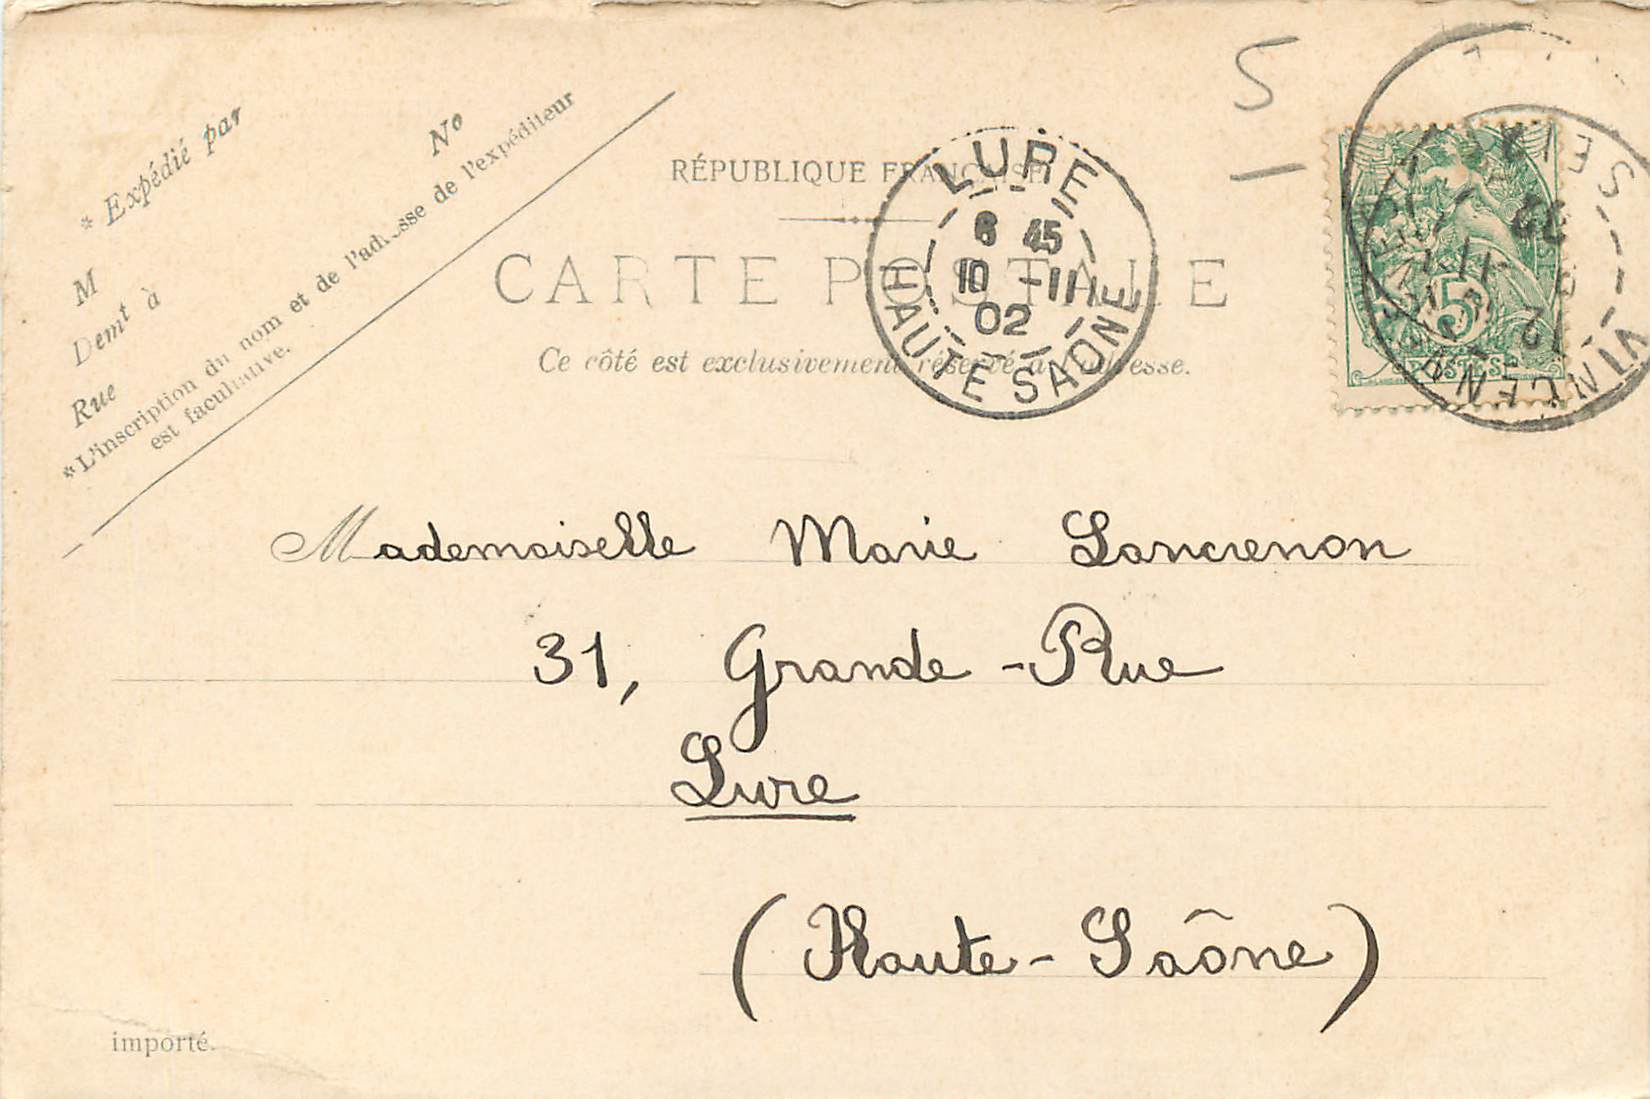 * Expédié par
N°
M
Demt à
Rue
*L'inscription du nom et de l'adresse de l'expéditeur
est facultative.
RÉPUBLIQUE FRANÇAISE
CARTE POSTALE
Ce côté est exclusivement réservé à l'adresse.
LURE
6 45
10 -11
02
HAUTE SAONE
5
VINCENNES
SEINE
5
POSTES
Mademoiselle Marie Lancrenon
31, Grande-Rue
Lure
(Haute-Saône)
importé.